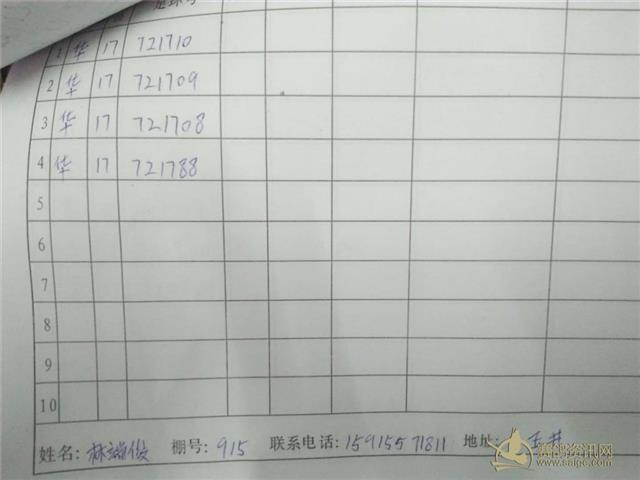 足环号
1 华 17 721710
2 华 17 721709
3 华 17 721708
4 华 17 721788
5
6
7
8
9
10
姓名: 林端俊 棚号: 915 联系电话: 15915571811 地址: 玉井
赛鸽资讯网
www.saige.com